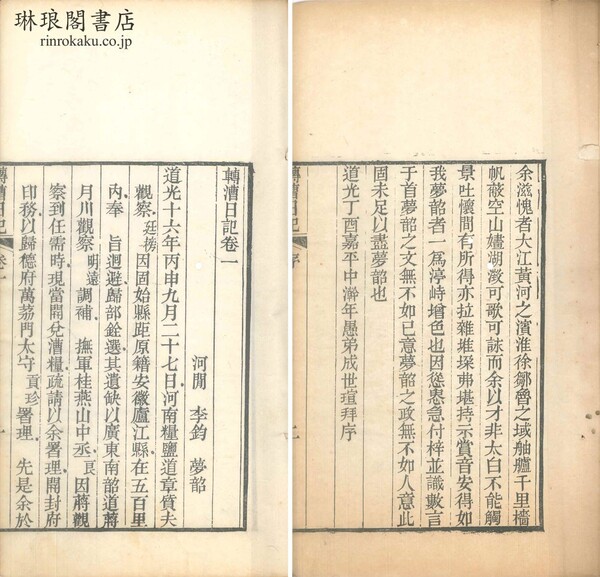 琳琅閣書店
rinrokaku.co.jp
余滋愧者大江黃河之濱淮徐鄒魯之域舳艫千里檣
帆蔽空山嬧湖漵可歌可詠而余以才非太白不能觸
景吐懷間有所得亦拉雜堆垛弗堪持示賞音安得如
我夢韶者一為渟峙增色也因慫恿急付梓並識數言
于首夢韶之文無不如己意夢韶之政無不如人意此
固未足以盡夢韶也
道光丁酉嘉平中澣年愚弟成世瑄拜序
轉漕日記
序
轉漕日記卷一
河間 李鈞 夢韶
道光十六年丙申九月二十七日河南糧鹽道章質夫
觀察廷榜因固始縣距原籍安徽廬江縣在五百里
內奉 旨迴避歸部銓選其遺缺以廣東南韶道蔣
月川觀察明遠調補 撫軍桂燕山中丞良因蔣觀
察到任需時現當開兌漕糧疏請以余署理開封府
印務以歸德府萬荔門太守貢珍署理 先是余於
轉漕日記
卷一
一